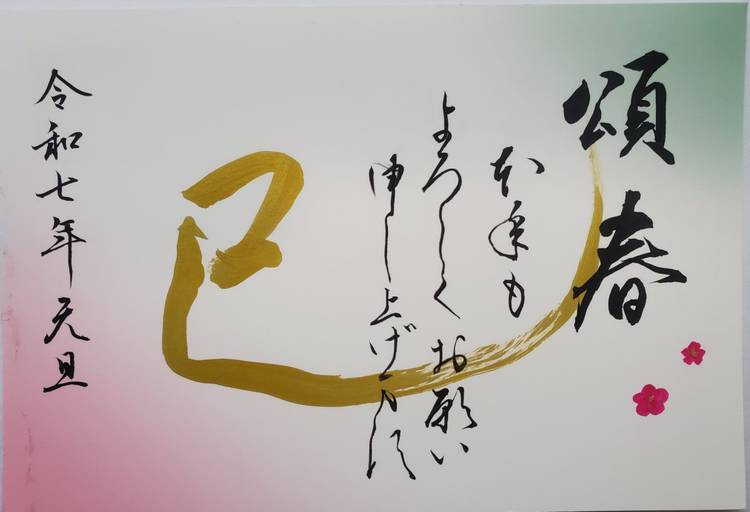 頌春
本年も
よろしくお願い
申し上げます
巳
令和七年元旦